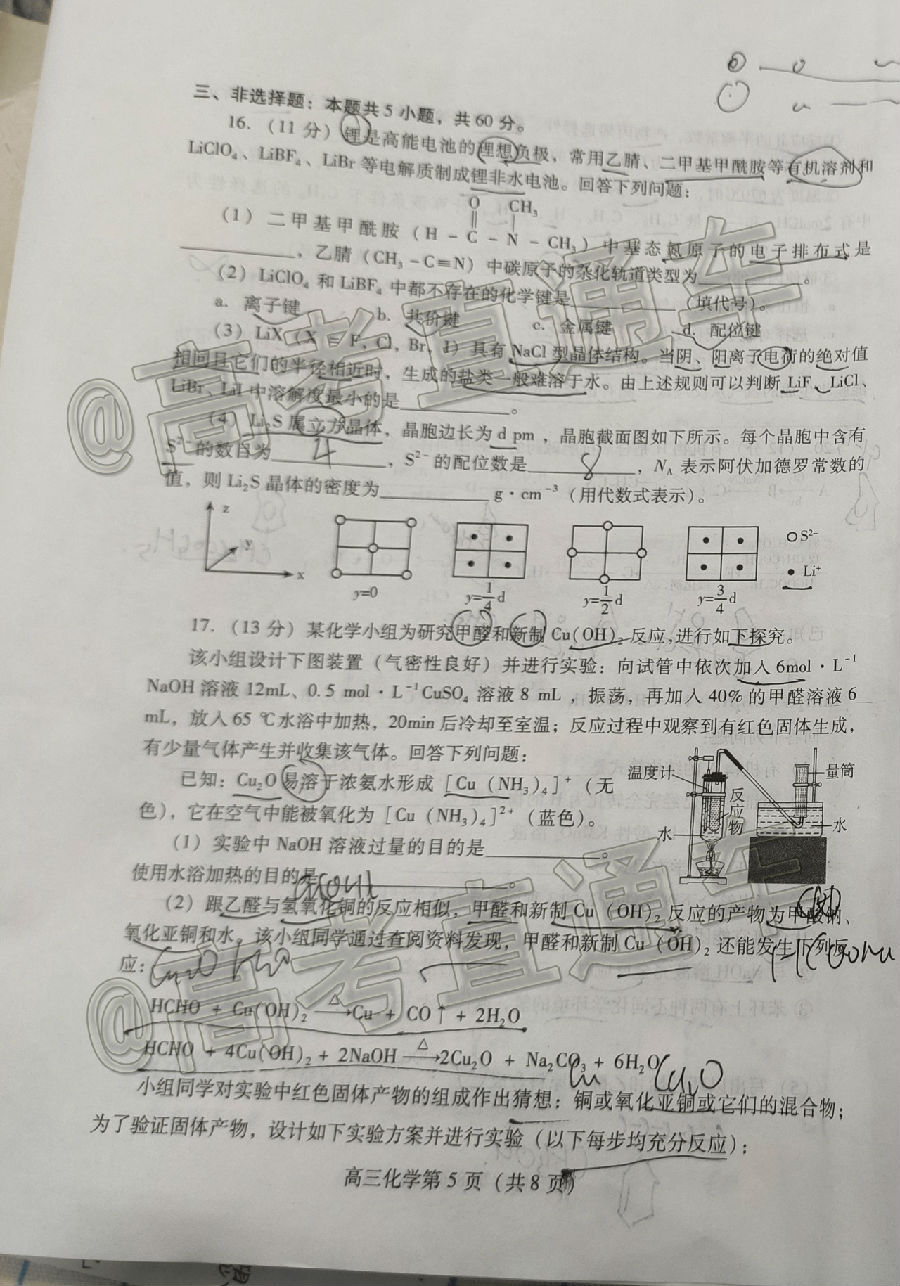 三、非选择题：本题共5小题，共60分。
16.（11分）锂是高能电池的理想负极，常用乙腈、二甲基甲酰胺等有机溶剂和
LiClO₄、LiBF₄、LiBr等电解质制成锂非水电池。回答下列问题：
O CH₃
（1）二甲基甲酰胺（H－C－N－CH₃）中基态氮原子的电子排布式是
，乙腈（CH₃－C≡N）中碳原子的杂化轨道类型为 。
（2）LiClO₄和LiBF₄中都不存在的化学键是 （填代号）。
a. 离子键 b. 共价键 c. 金属键 d. 配位键
（3）LiX（X＝F，Cl，Br，I）具有NaCl型晶体结构。当阴、阳离子电荷的绝对值
相同且它们的半径相近时，生成的盐类一般难溶于水。由上述规则可以判断LiF、LiCl、
LiBr、LiI中溶解度最小的是 。
（4）Li₂S属立方晶体，晶胞边长为d pm，晶胞截面图如下所示。每个晶胞中含有
S²⁻的数目为 4 ，S²⁻的配位数是 8 ，Nₐ表示阿伏加德罗常数的
值，则Li₂S晶体的密度为 g·cm⁻³（用代数式表示）。
z
y
x
○S²⁻
•Li⁺
y=0 y=1/4 d y=1/2 d y=3/4 d
17.（13分）某化学小组为研究甲醛和新制Cu(OH)₂反应，进行如下探究。
该小组设计下图装置（气密性良好）并进行实验：向试管中依次加入6mol·L⁻¹
NaOH溶液12mL、0.5 mol·L⁻¹CuSO₄溶液8 mL，振荡，再加入40%的甲醛溶液6
mL，放入65 ℃水浴中加热，20min后冷却至室温；反应过程中观察到有红色固体生成，
有少量气体产生并收集该气体。回答下列问题：
已知：Cu₂O易溶于浓氨水形成［Cu（NH₃）₄］⁺（无
色），它在空气中能被氧化为［Cu（NH₃）₄］²⁺（蓝色）。
温度计
量筒
反应物
水
水
（1）实验中NaOH溶液过量的目的是 。
使用水浴加热的目的是 。
（2）跟乙醛与氢氧化铜的反应相似，甲醛和新制Cu（OH）₂反应的产物为甲酸钠、
氧化亚铜和水。该小组同学通过查阅资料发现，甲醛和新制Cu（OH）₂还能发生下列反
应：
Cu₂O H₂O
HCHO + Cu(OH)₂ △→ Cu + CO↑ + 2H₂O
HCHO + 4Cu(OH)₂ + 2NaOH △→ 2Cu₂O + Na₂CO₃ + 6H₂O
Cu Cu₂O
小组同学对实验中红色固体产物的组成作出猜想：铜或氧化亚铜或它们的混合物；
为了验证固体产物，设计如下实验方案并进行实验（以下每步均充分反应）：
高三化学第5页（共8页）
@高考直通车
@高考直通车